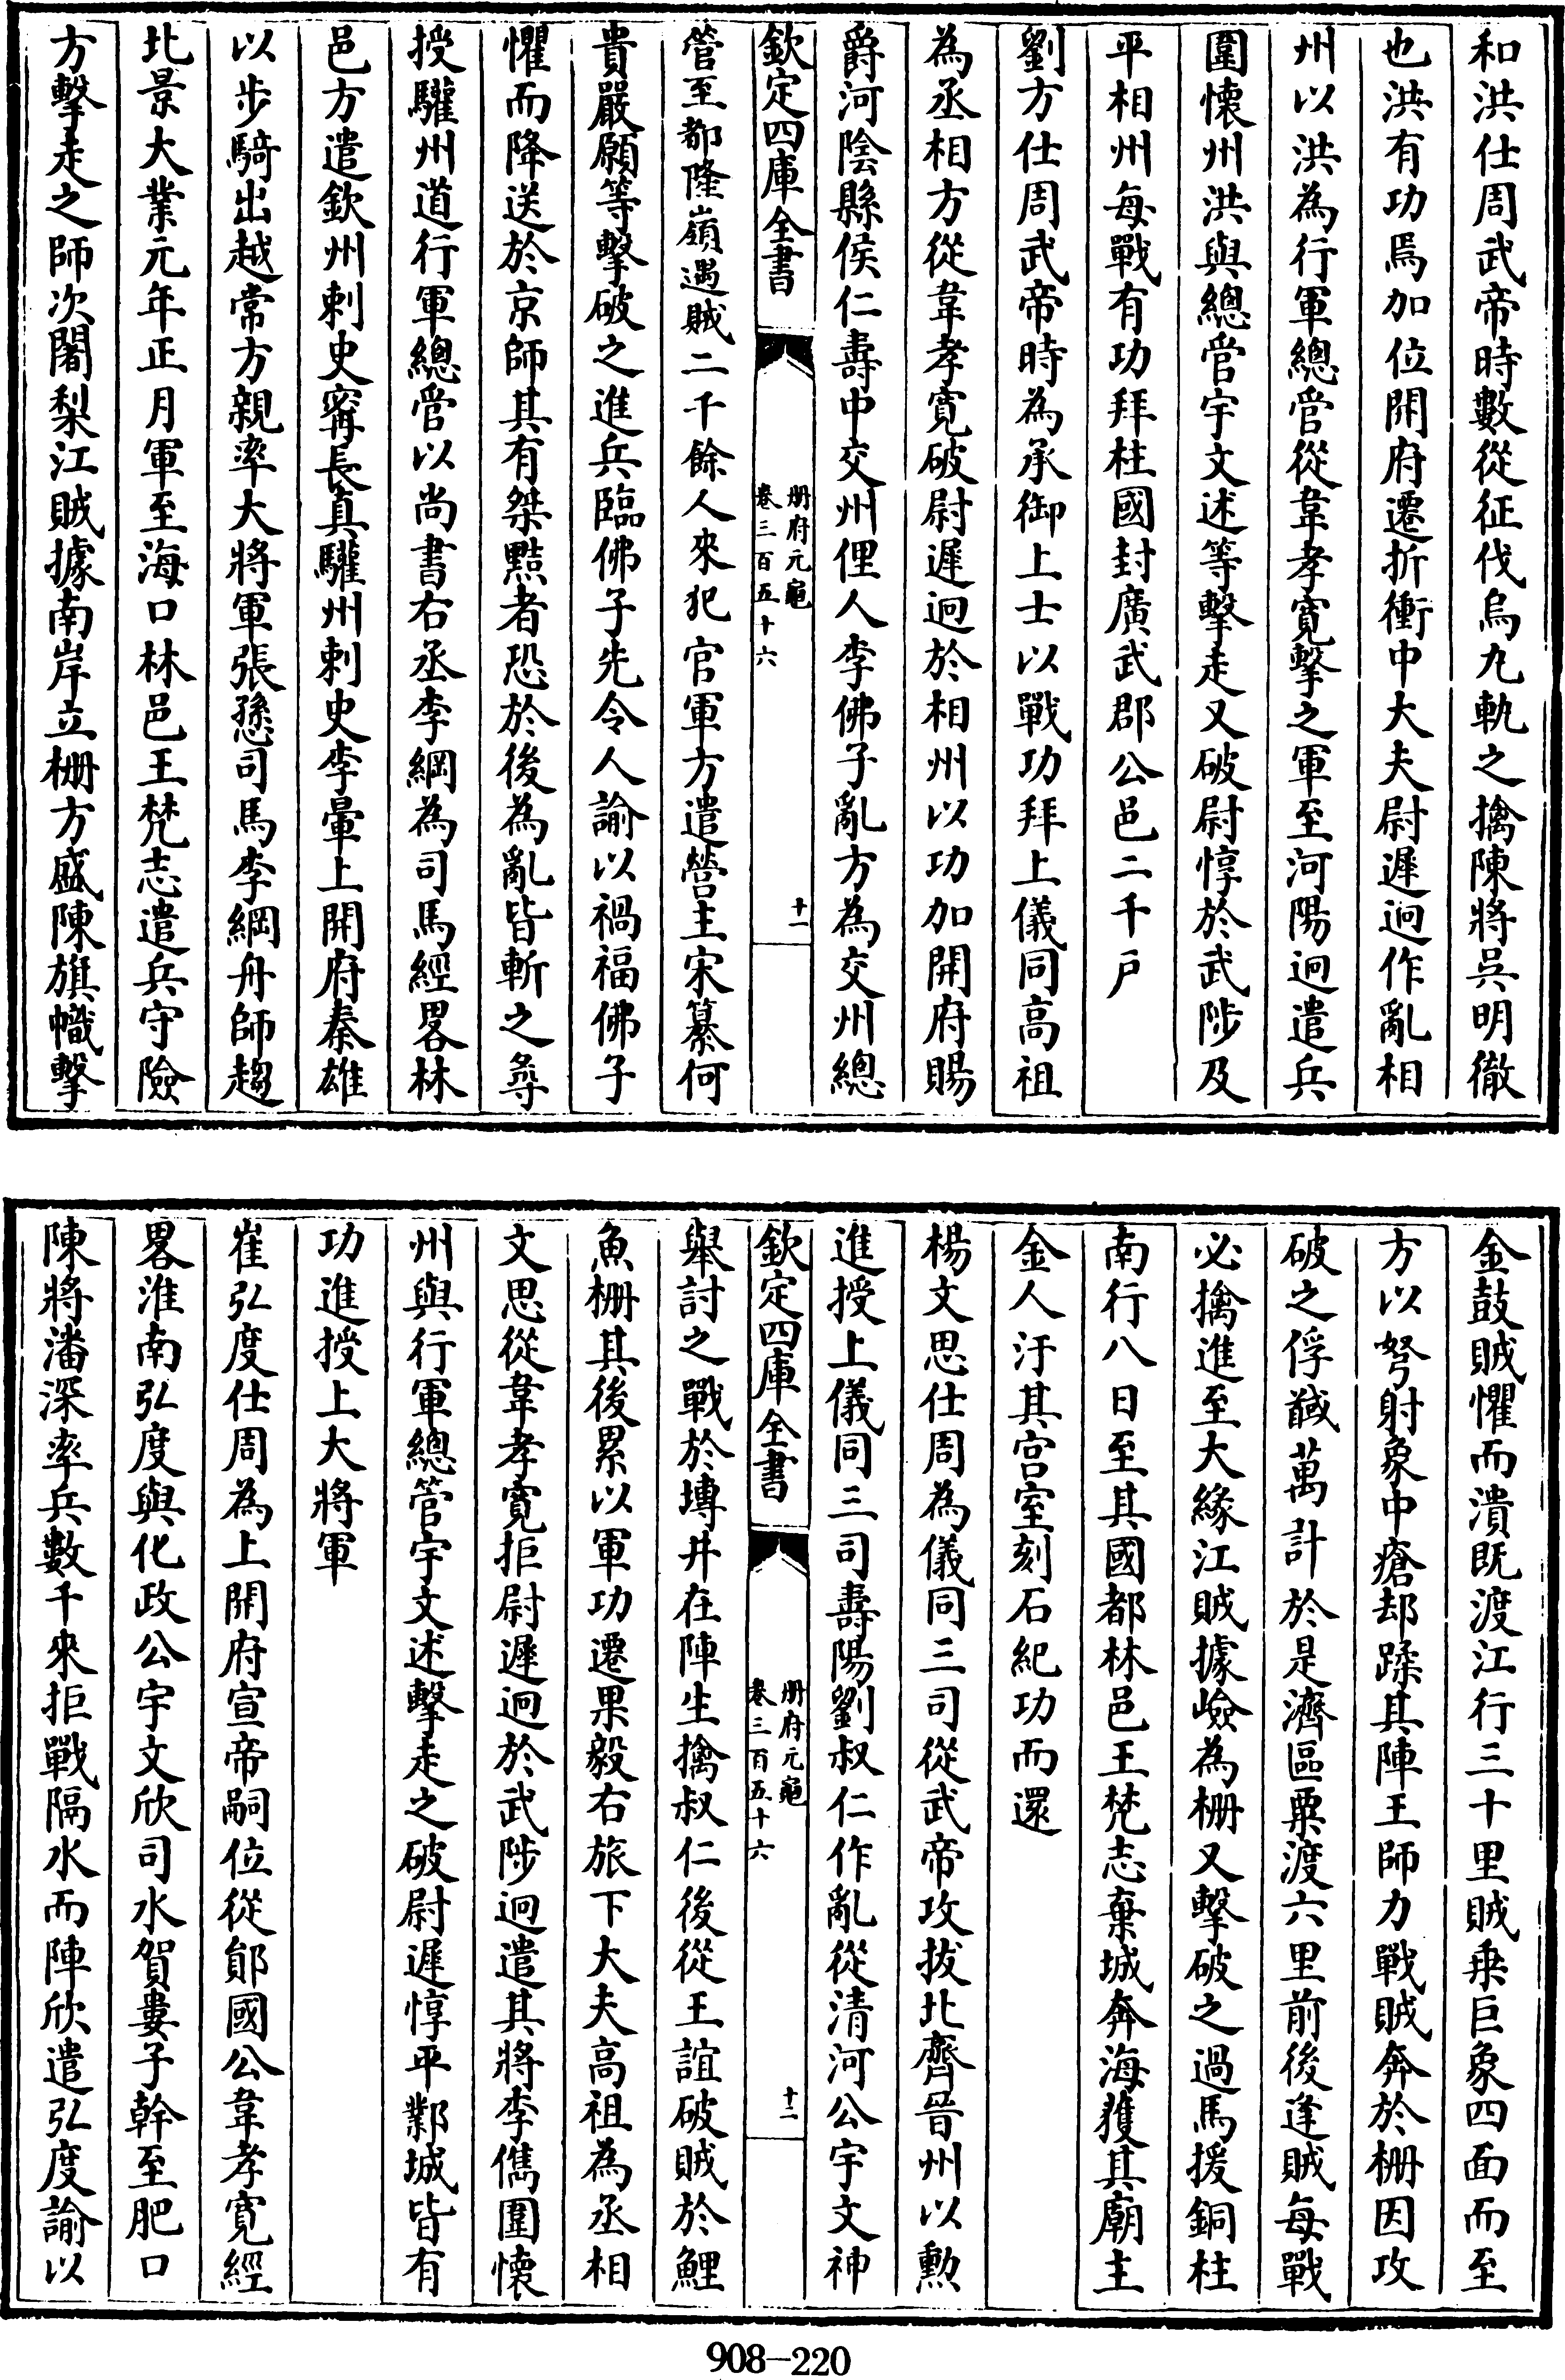 和洪仕周武帝時數從征伐烏丸軌之擒陳將吳明徹
也洪有功焉加位開府遷折衝中大夫尉遲迥作亂相
州以洪為行軍總管從韋孝寛擊之軍至河陽迥遣兵
圍懷州洪與總管宇文述等擊走又破尉惇於武陟及
平相州每戰有功拜柱國封廣武郡公邑二千戶
劉方仕周武帝時為承御上士以戰功拜上儀同高祖
為丞相方從韋孝寛破尉遲迥於相州以功加開府賜
爵河陰縣侯仁壽中交州俚人李佛子亂方為交州總
欽定四庫全書
册府元龜
卷三百五十六
十一
管至都隆嶺遇賊二千餘人來犯官軍方遣營主宋纂何
貴嚴願等擊破之進兵臨佛子先令人諭以禍福佛子
懼而降送於京師其有桀黠者恐於後為亂皆斬之尋
授驩州道行軍總管以尚書右丞李綱為司馬經畧林
邑方遣欽州刺史甯長真驩州刺史李暈上開府秦雄
以步騎出越常方親率大將軍張愻司馬李綱舟師趨
北景大業元年正月軍至海口林邑王梵志遣兵守險
方擊走之師次闍梨江賊據南岸立栅方盛陳旗幟擊
金鼓賊懼而潰既渡江行三十里賊乗巨象四面而至
方以弩射象中瘡却蹂其陣王師力戰賊奔於栅因攻
破之俘馘萬計於是濟區粟渡六里前後逢賊每戰
必擒進至大緣江賊據嶮為栅又擊破之過馬援銅柱
南行八日至其國都林邑王梵志棄城奔海獲其廟主
金人汙其宫室刻石紀功而還
楊文思仕周為儀同三司從武帝攻拔北齊晉州以勲
進授上儀同三司壽陽劉叔仁作亂從清河公宇文神
欽定四庫全書
册府元龜
卷三百五十六
十二
舉討之戰於塼井在陣生擒叔仁後從王誼破賊於鯉
魚栅其後累以軍功遷果毅右旅下大夫高祖為丞相
文思從韋孝寛拒尉遲迥於武陟迥遣其將李儁圍懷
州與行軍總管宇文述擊走之破尉遲惇平鄴城皆有
功進授上大將軍
崔弘度仕周為上開府宣帝嗣位從鄖國公韋孝寛經
畧淮南弘度與化政公宇文欣司水賀婁子幹至肥口
陳將潘深率兵數千來拒戰隔水而陣欣遣弘度諭以
908-220